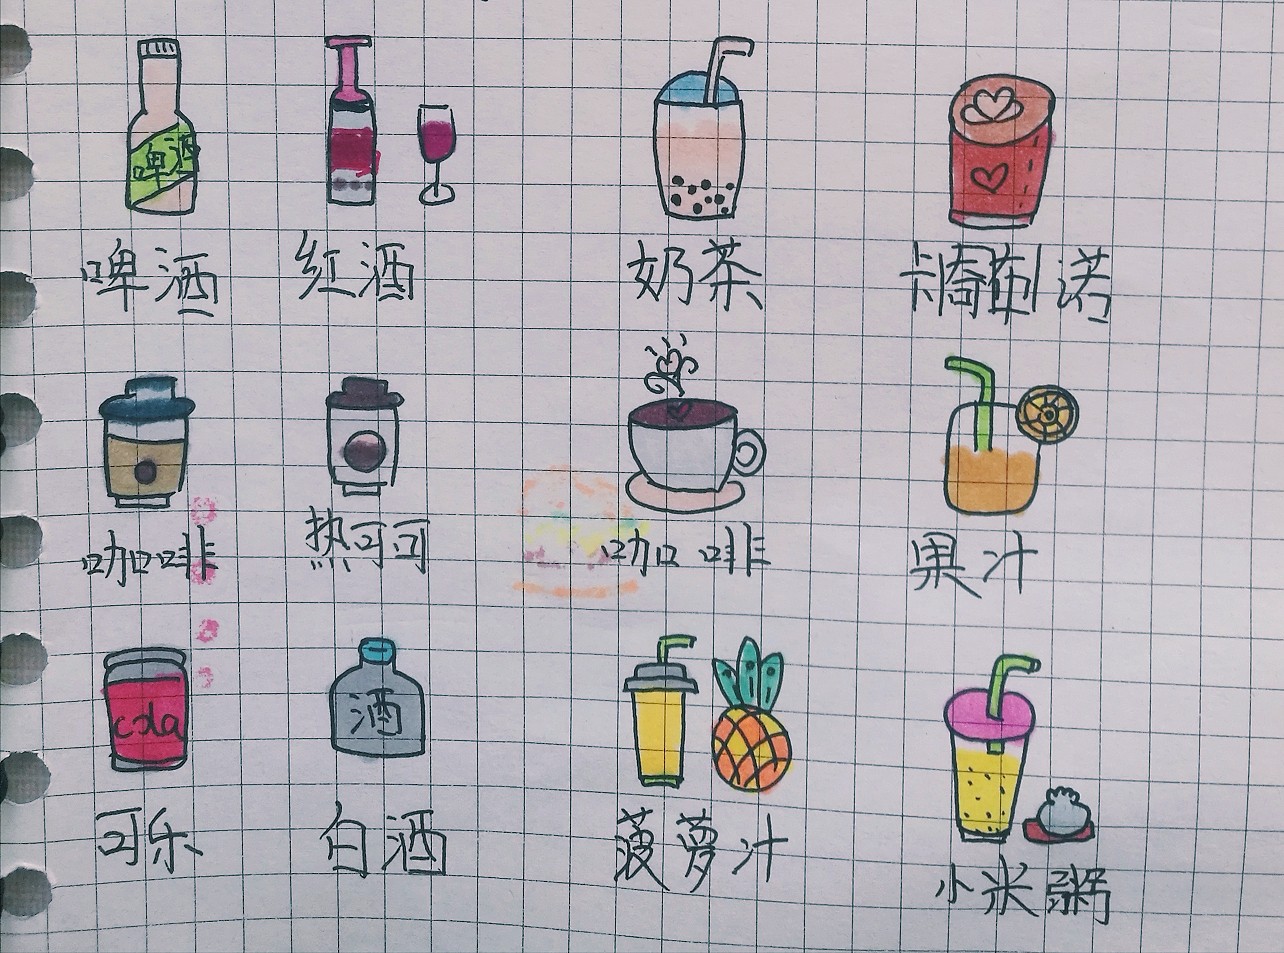 啤酒
啤酒 红酒 奶茶 卡布诺
咖啡 热可可 咖啡 果汁
cola 酒
可乐 白酒 菠萝汁 小米粥